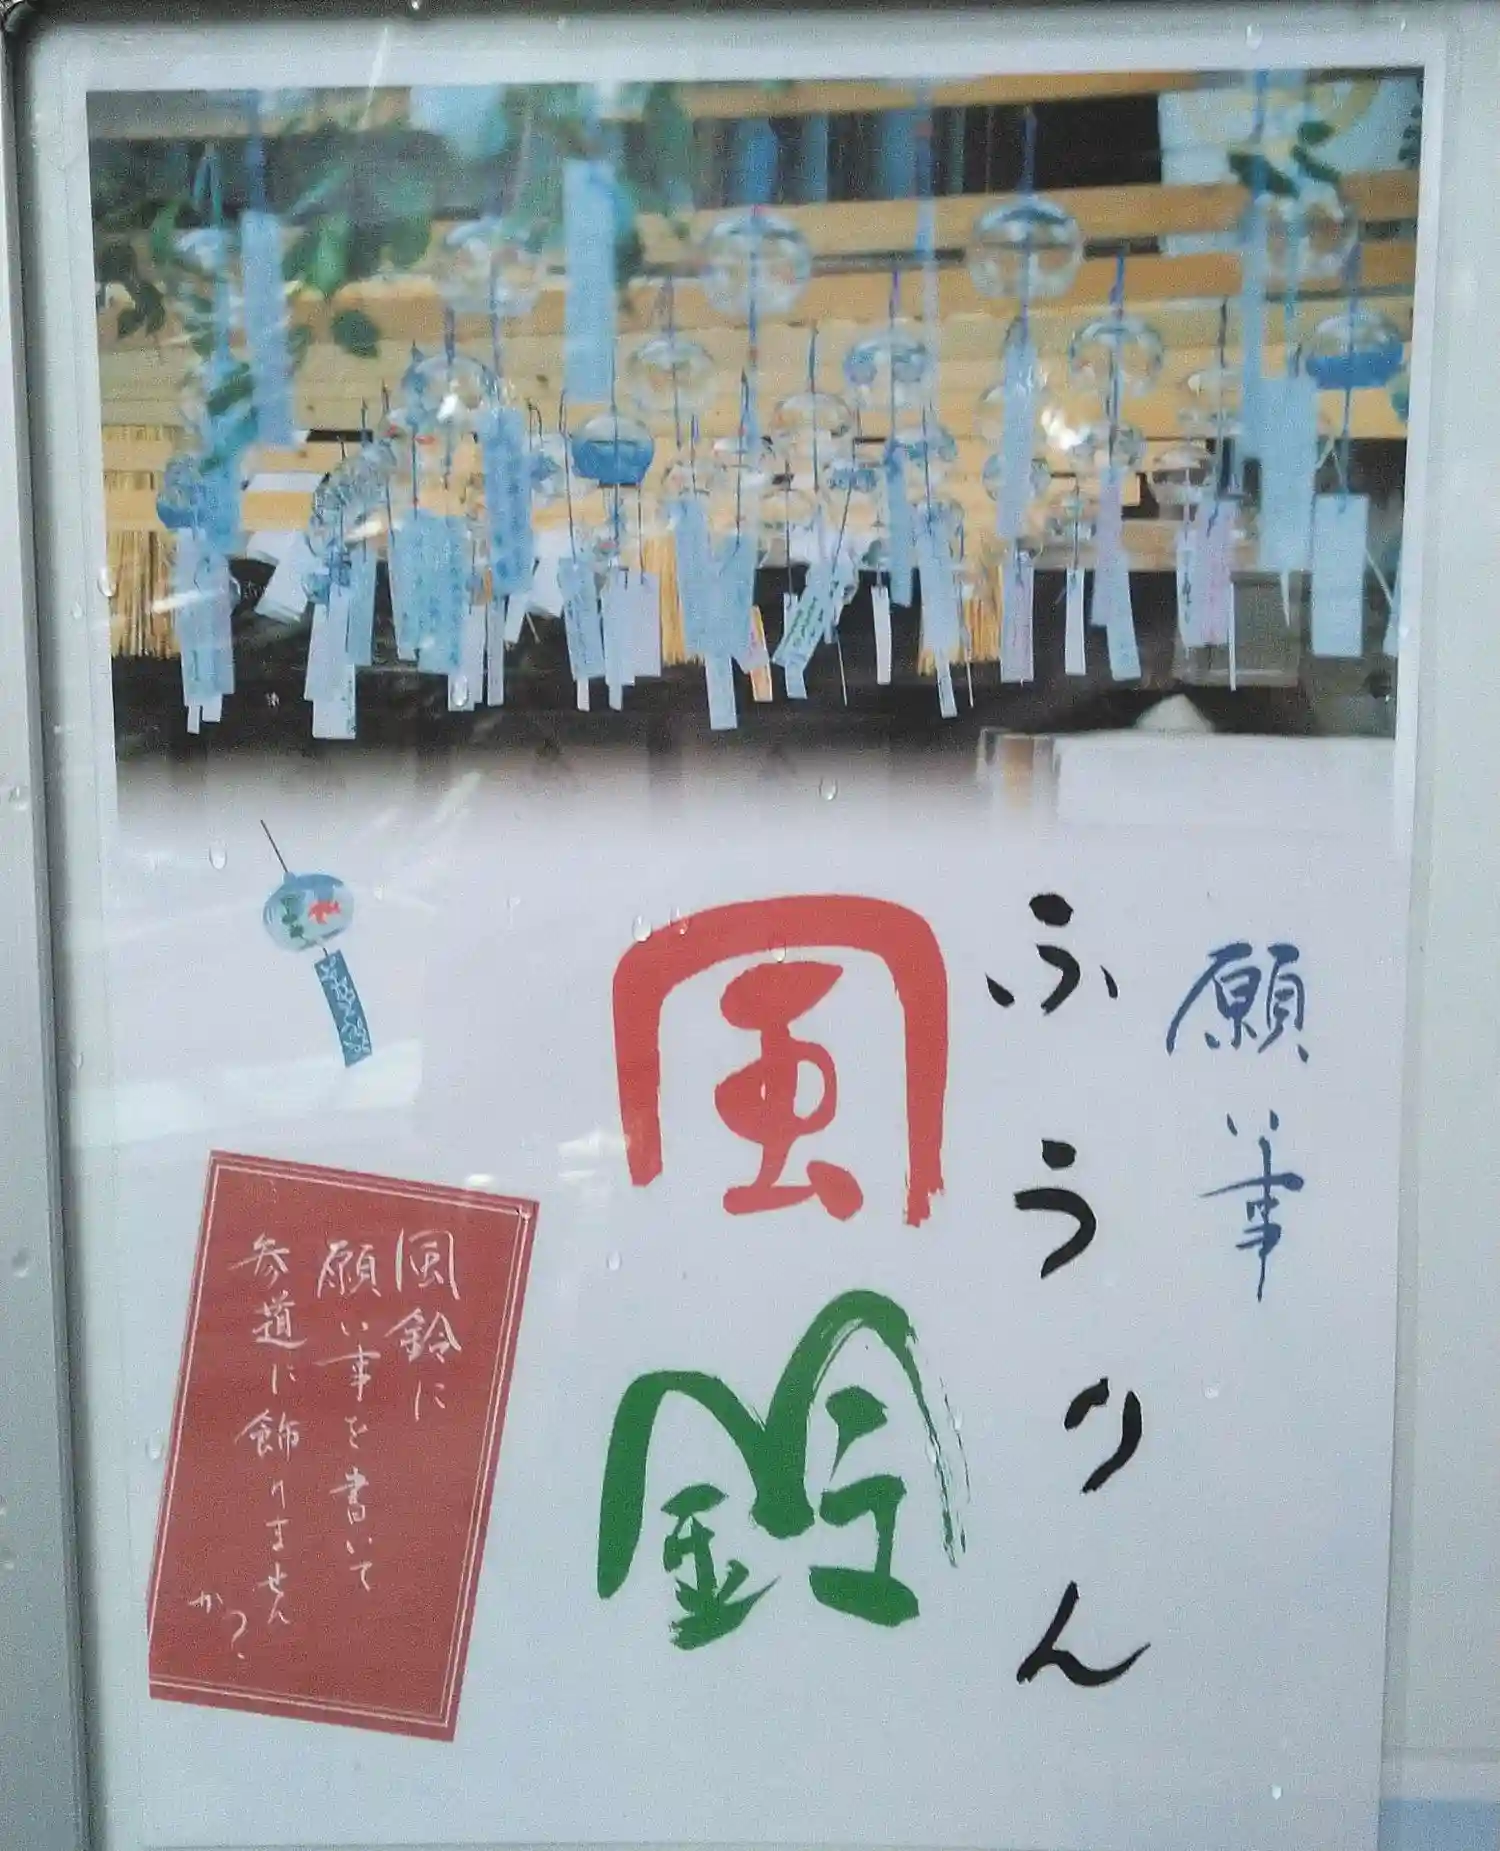 願い事
ふうりん
風鈴
風鈴に
願い事を書いて
参道に飾りませんか?